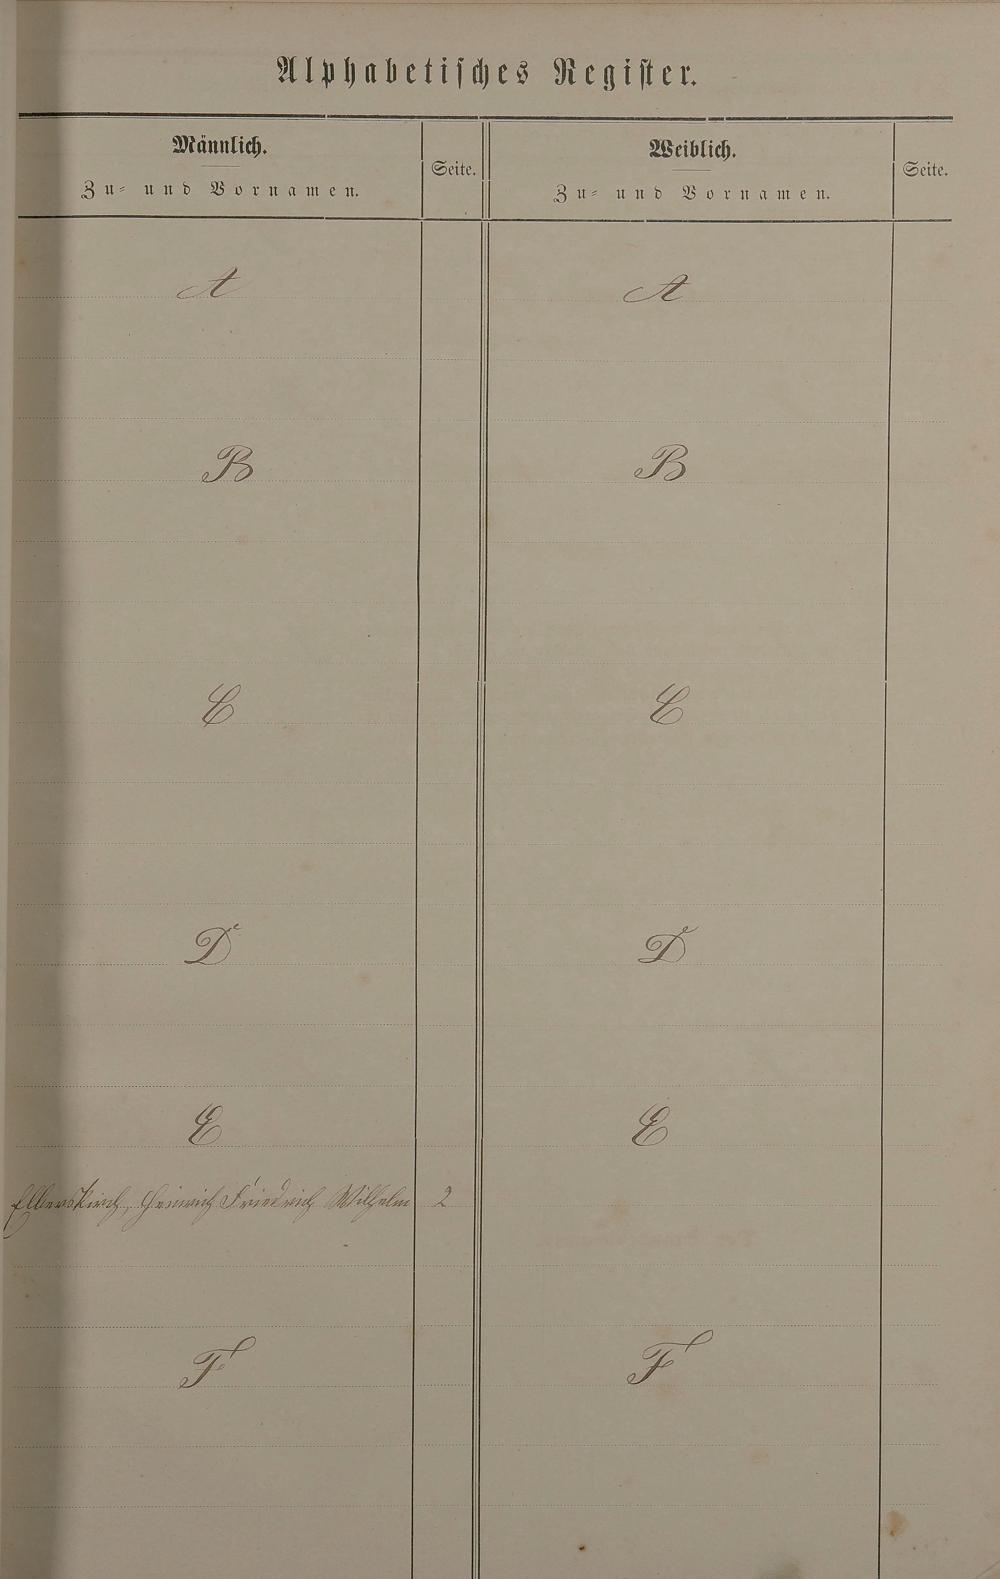 Alphabetisches Register.
Männlich.
Zu- und Vornamen.
Seite.
Weiblich.
Zu- und Vornamen.
Seite.
A
A
B
B
C
C
D
D
E
E
Elberskirch, Heinrich Friedrich Wilhelm 2
F
F